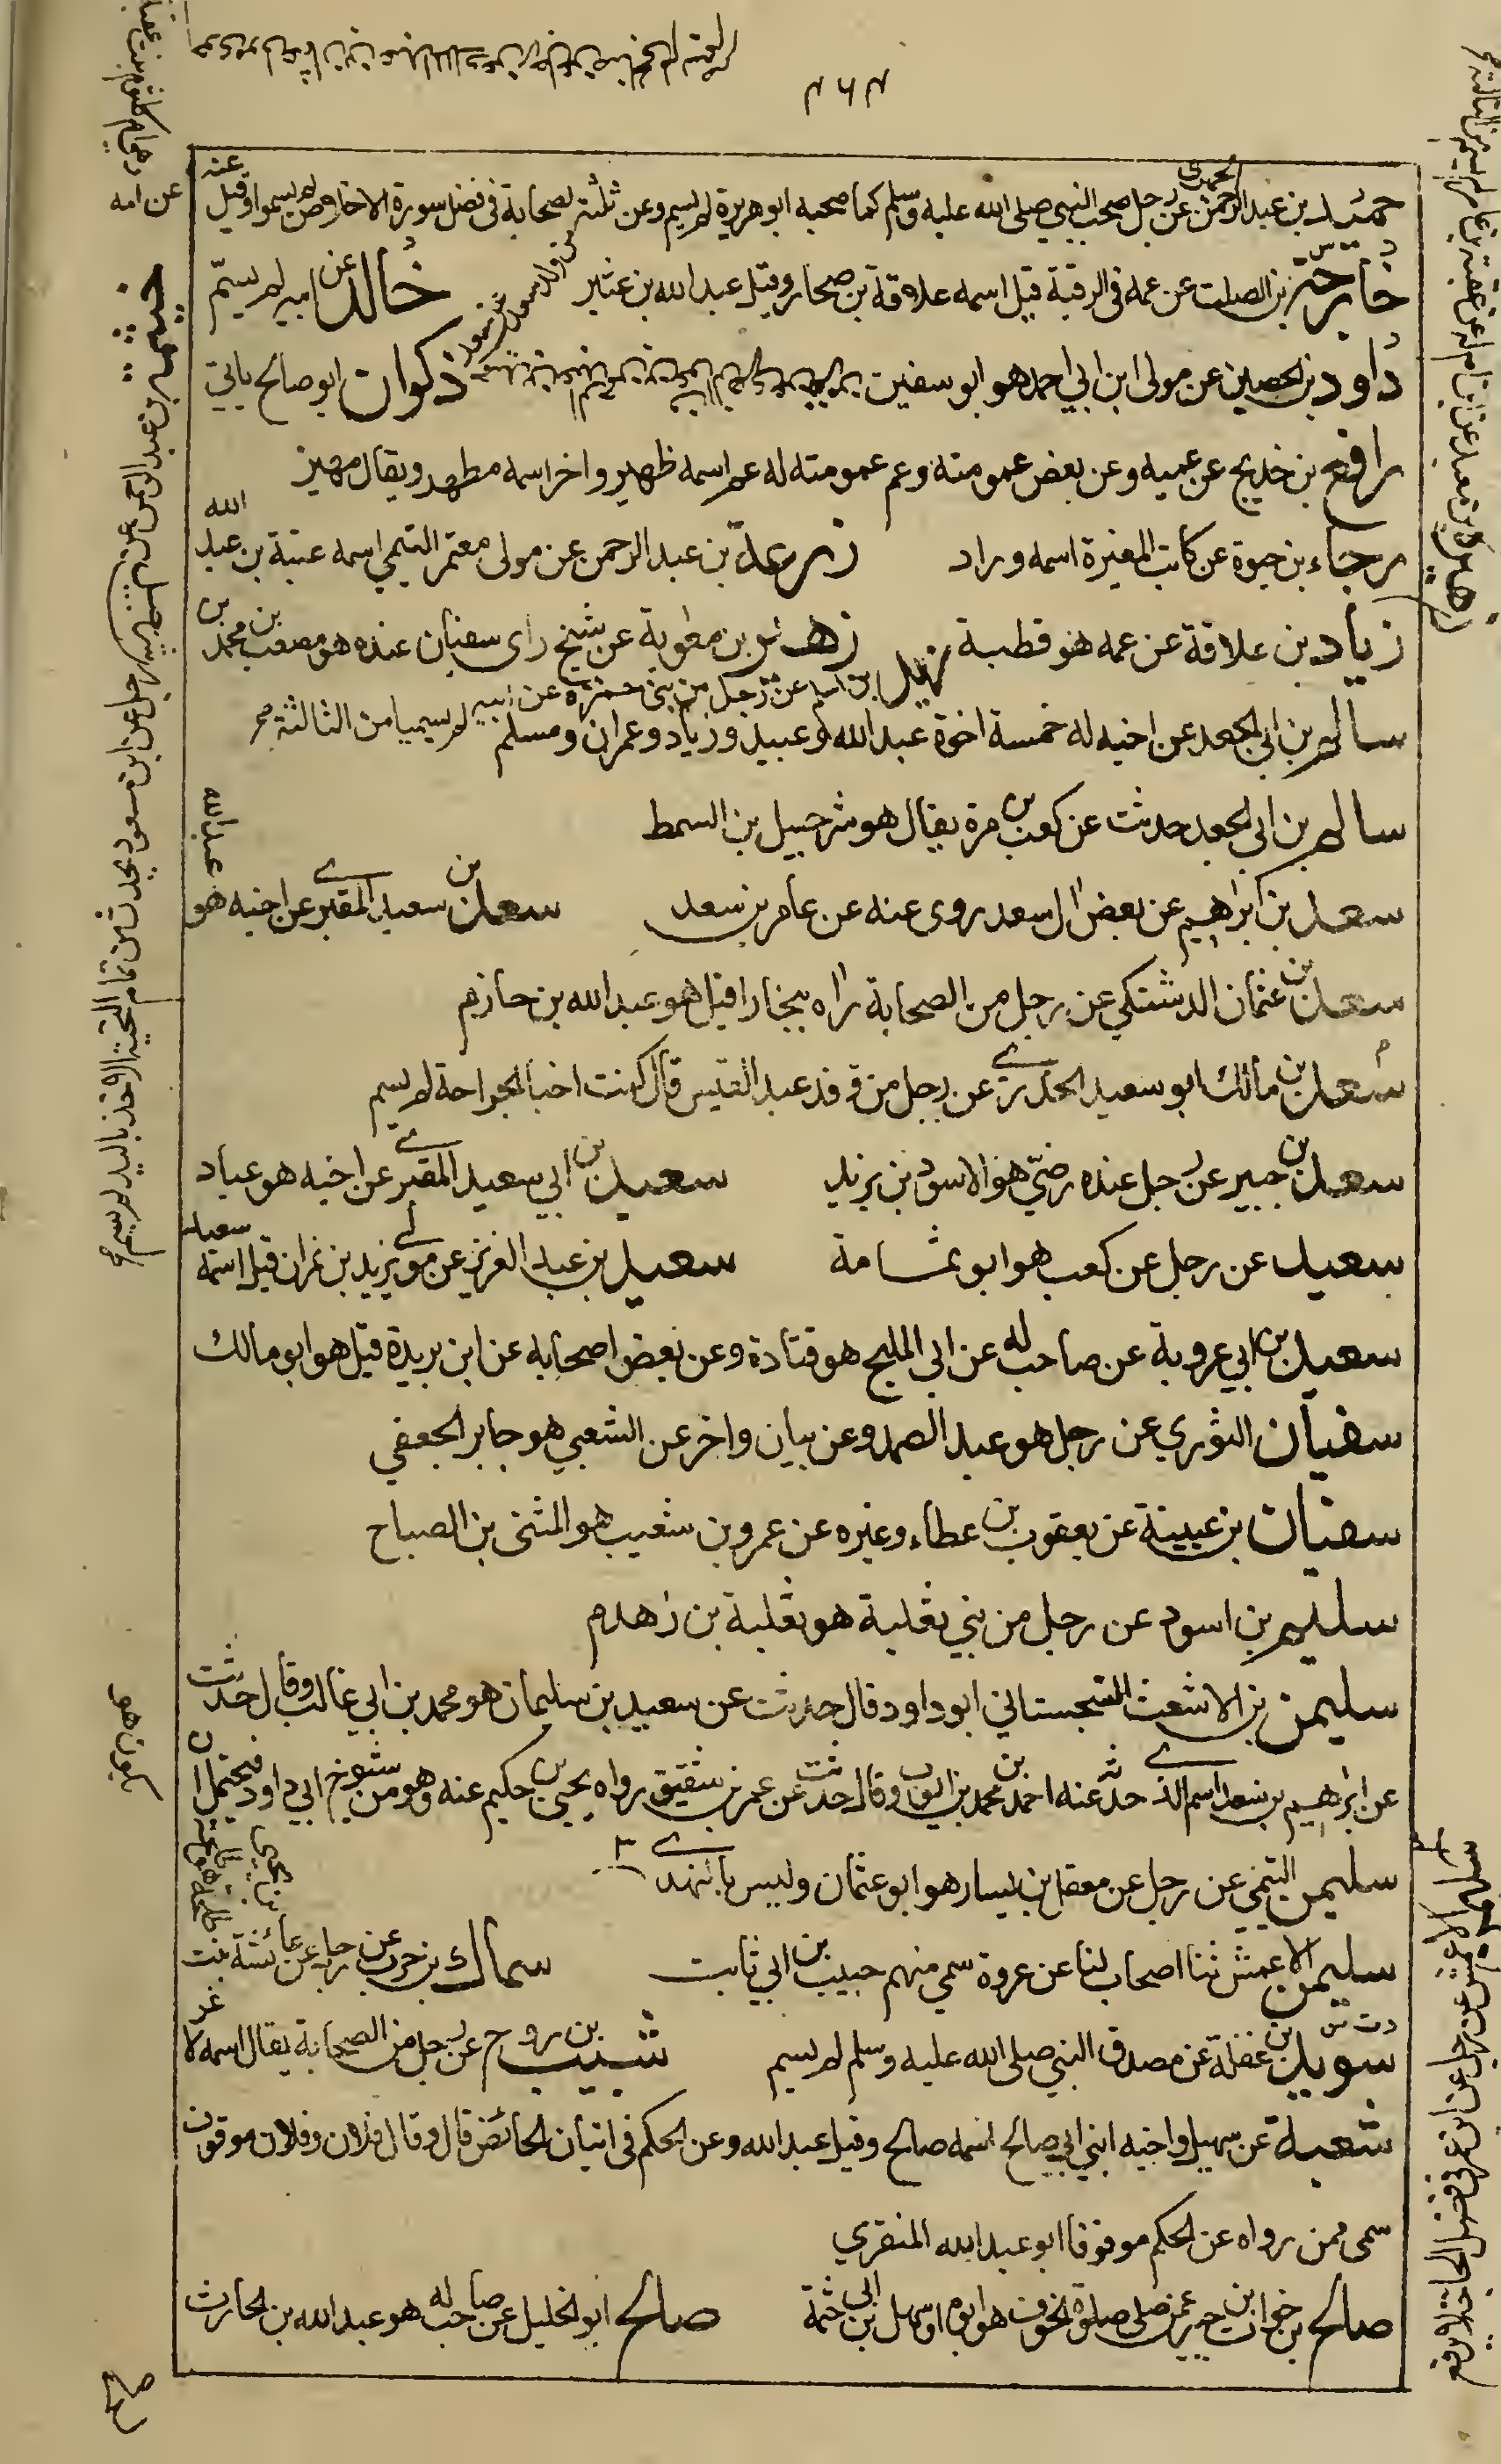 ۴۶۴
حميد بن عبد الرحمن الحميري عن رجل صحب النبي صلى الله عليه وسلم كما صحبه ابو هريرة لم يسم وعن ثلثة لصحابة في فضل سورة الاخلاص لم يسموا وقيل عنه
خارجة بن الصلت عن عمه في الرقية قيل اسمه علاقة بن صحار وقيل عبد الله بن عثير خالد عن ابيه لم يسم
داود بن الحصين عن مولى ابن ابي احمد هو ابو سفين ذكوان ابو صالح ياتي
رافع بن خديج عن عميه وعن بعض عمومته وعم عمومته له عم اسمه ظهير واخر اسمه مطهر ويقال مهير
رجاء بن حيوة عن كاتب المغيرة اسمه وراد زرعة بن عبد الرحمن عن مولى معتمر التيمي اسمه عتبة بن عبد الله
زياد بن علاقة عن عمه هو قطبة زهير بن معوية عن شيخ راى سفيان عنده هو مصعب بن محمد بن
زيد بن اسلم عن رجل من بني ضمرة عن ابيه لم يسميا من الثالثة
سالم بن ابي الجعد عن اخيه له خمسة اخوة عبد الله وعبيد وزياد وعمران ومسلم
سالم بن ابي الجعد حدثت عن كعب بن مرة يقال هو شرحبيل بن السمط
سعد بن ابرهيم عن بعض ال سعد روى عنه عن عامر بن سعد سعد بن سعيد المقبري عن اخيه هو عبد الله
سعد بن عثمان الدشتكي عن رجل من الصحابة راه ببخارا قيل هو عبد الله بن حازم
سعد بن مالك ابو سعيد الخدري عن رجل من وفد عبد القيس قال كنت اخبأ الجراحة لم يسم
سعيد بن جبير عن رجل عنده رضي هو الاسود بن يزيد سعيد بن ابي سعيد المقبري عن اخيه هو عباد
سعيد عن رجل عن كعب هو ابو ثمامة سعيد بن عبد العزيز عن مولى يزيد بن نمران قيل اسمه سعيد
سعيد بن ابي عروبة عن صاحب له عن ابي المليح هو قتادة وعن بعض اصحابه عن ابن بريدة قيل هو ابو مالك
سفيان الثوري عن رجل هو عبد الصمد وعن بيان واخر عن الشعبي هو جابر الجعفي
سفيان بن عيينة عن يعقوب بن عطاء وغيره عن عمرو بن شعيب هو المثنى بن الصباح
سليم بن اسود عن رجل من بني ثعلبة هو ثعلبة بن زهدم
سليمن بن الاشعث السجستاني ابو داود قال حدثت عن سعيد بن سليمان هو محمد بن ابي غالب وقال حدثت
عن ابرهيم بن سعد اسم الذي حدثه عنه احمد بن محمد بن ايوب وقال حدثت عن عمر بن شقيق رواه يحيى بن حكيم عنه وهو من شيوخ ابي داود فيحتمل ان
سليمن التيمي عن رجل عن معقل بن يسار هو ابو عثمان وليس بالنهدي
سليمن الاعمش ثنا اصحاب لنا عن عروة سمي منهم حبيب بن ابي ثابت سماك بن حرب عن رجل عن عائشة بنت
سويد بن غفلة عن مصدق النبي صلى الله عليه وسلم لم يسم شبيب بن روح عن رجل من الصحابة يقال اسمه الاغر
شعبة عن سهيل واخيه ابني ابي صالح اسمه صالح وقيل عبد الله وعن الحكم في اتيان الحائض قال وقال فلان وفلان موقوف
سمى ممن رواه عن الحكم موقوفا ابو عبد الله المنقري
صالح بن خوات بن جبير عمن صلى صلوة الخوف هو ابوه او سهل بن ابي حثمة صالح ابو الخليل عن صاحب له هو عبد الله بن الحارث
خيثمة بن عبد الرحمن عن رجل عن ابن مسعود بحديث من تمام التحية الاخذ باليد لم يسم
سليمن الاعمش عن رجل عن ابن عمر في قضاء الحاجة لا يرفع
صالح